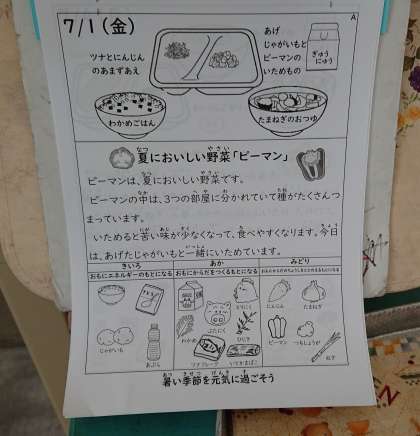 7/1(金)
A
ツナとにんじん
のあまずあえ
あげ
じゃがいもと
ピーマンの
いためもの
ぎゅう
にゅう
わかめごはん
たまねぎのおつゆ
夏においしい野菜「ピーマン」
ピーマンは、夏においしい野菜です。
ピーマンの中は、3つの部屋に分かれていて種がたくさんつ
まっています。
いためると苦い味が少なくなって、食べやすくなります。今日
は、あげたじゃがいもと一緒にいためています。
きいろ
あか
みどり
おもにエネルギーのもとになる
おもにからだをつくるもとになる
じゃがいも
あぶら
わかめ
ぶたにく
とりにく
ひじき
ツナフレーク
いりかまぼこ
にんじん
たまねぎ
ピーマン
ねぎ
暑い季節を元気に過ごそう